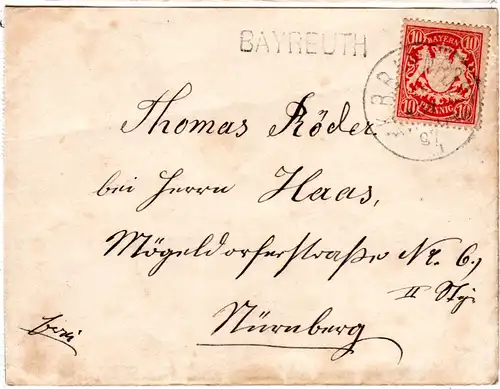 BAYREUTH
10 BAYERN 10
10 PFENNIG 10
Thomas Röder
bei Herrn Haas,
Mögeldorferstraße Nr. 6,
II Stg.
Nürnberg